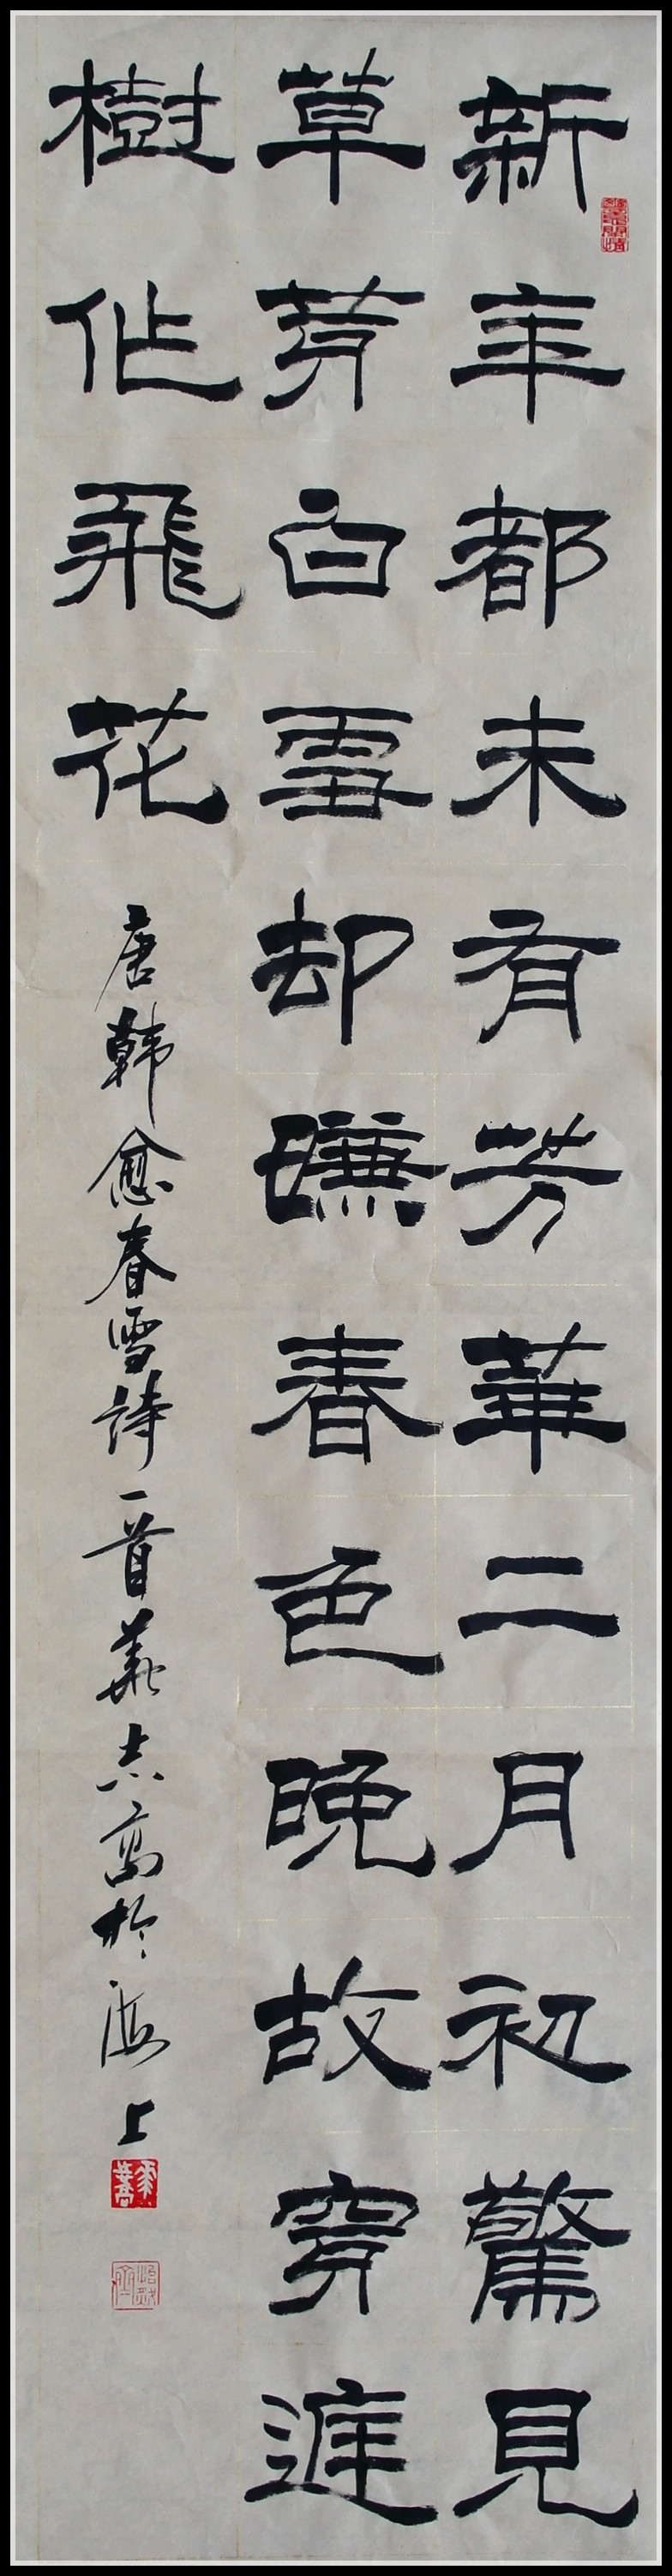 新年都未有芳華二月初驚見
草芽白雪却嫌春色晚故穿庭
樹作飛花
唐韓愈春雪詩一首志高於海上